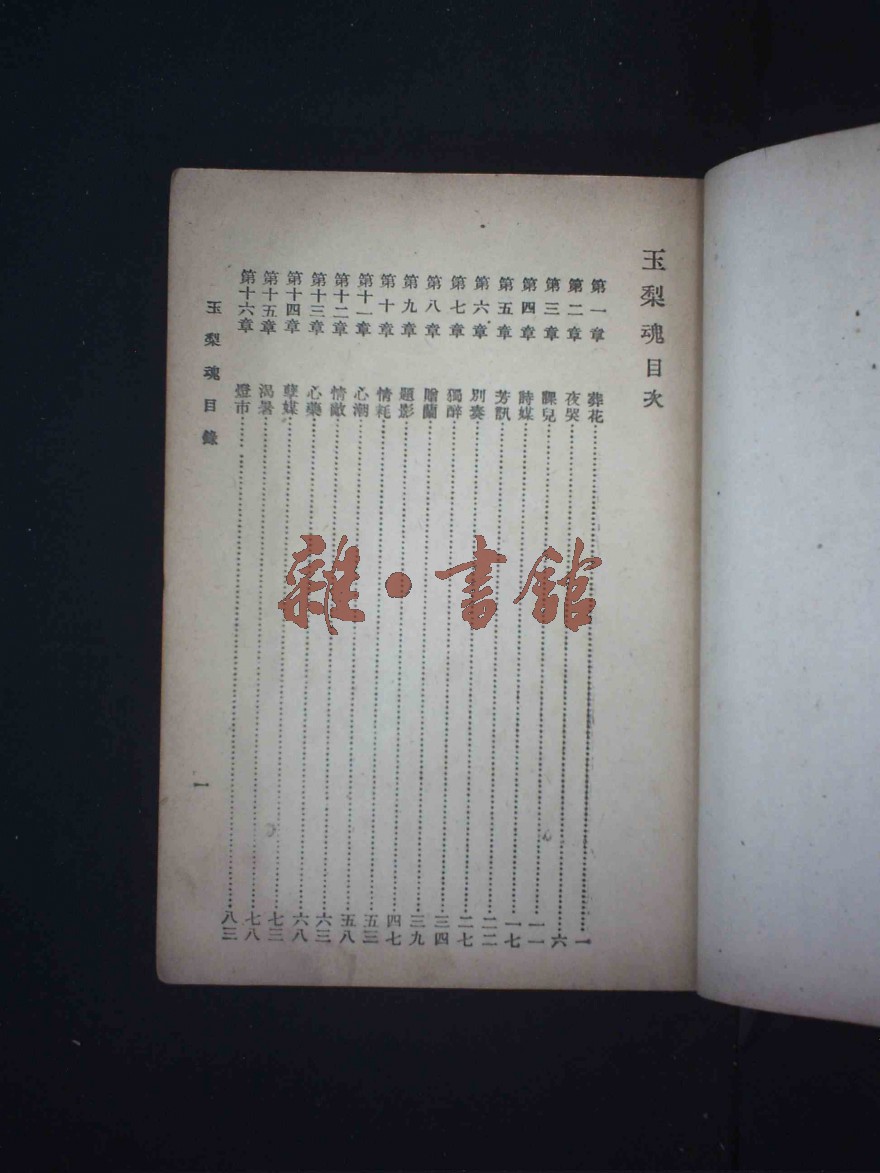 玉梨魂目次
第一章 葬花 一
第二章 夜哭 六
第三章 課兒 一一
第四章 詩媒 一七
第五章 芳訊 二二
第六章 別秦 二七
第七章 獨醉 三四
第八章 贈蘭 三九
第九章 題影 四七
第十章 情耗 五三
第十一章 心潮 五八
第十二章 情敵 六三
第十三章 心藥 六八
第十四章 孽媒 七三
第十五章 渴暑 七八
第十六章 燈市 八三
玉梨魂目錄
一
雜·書館